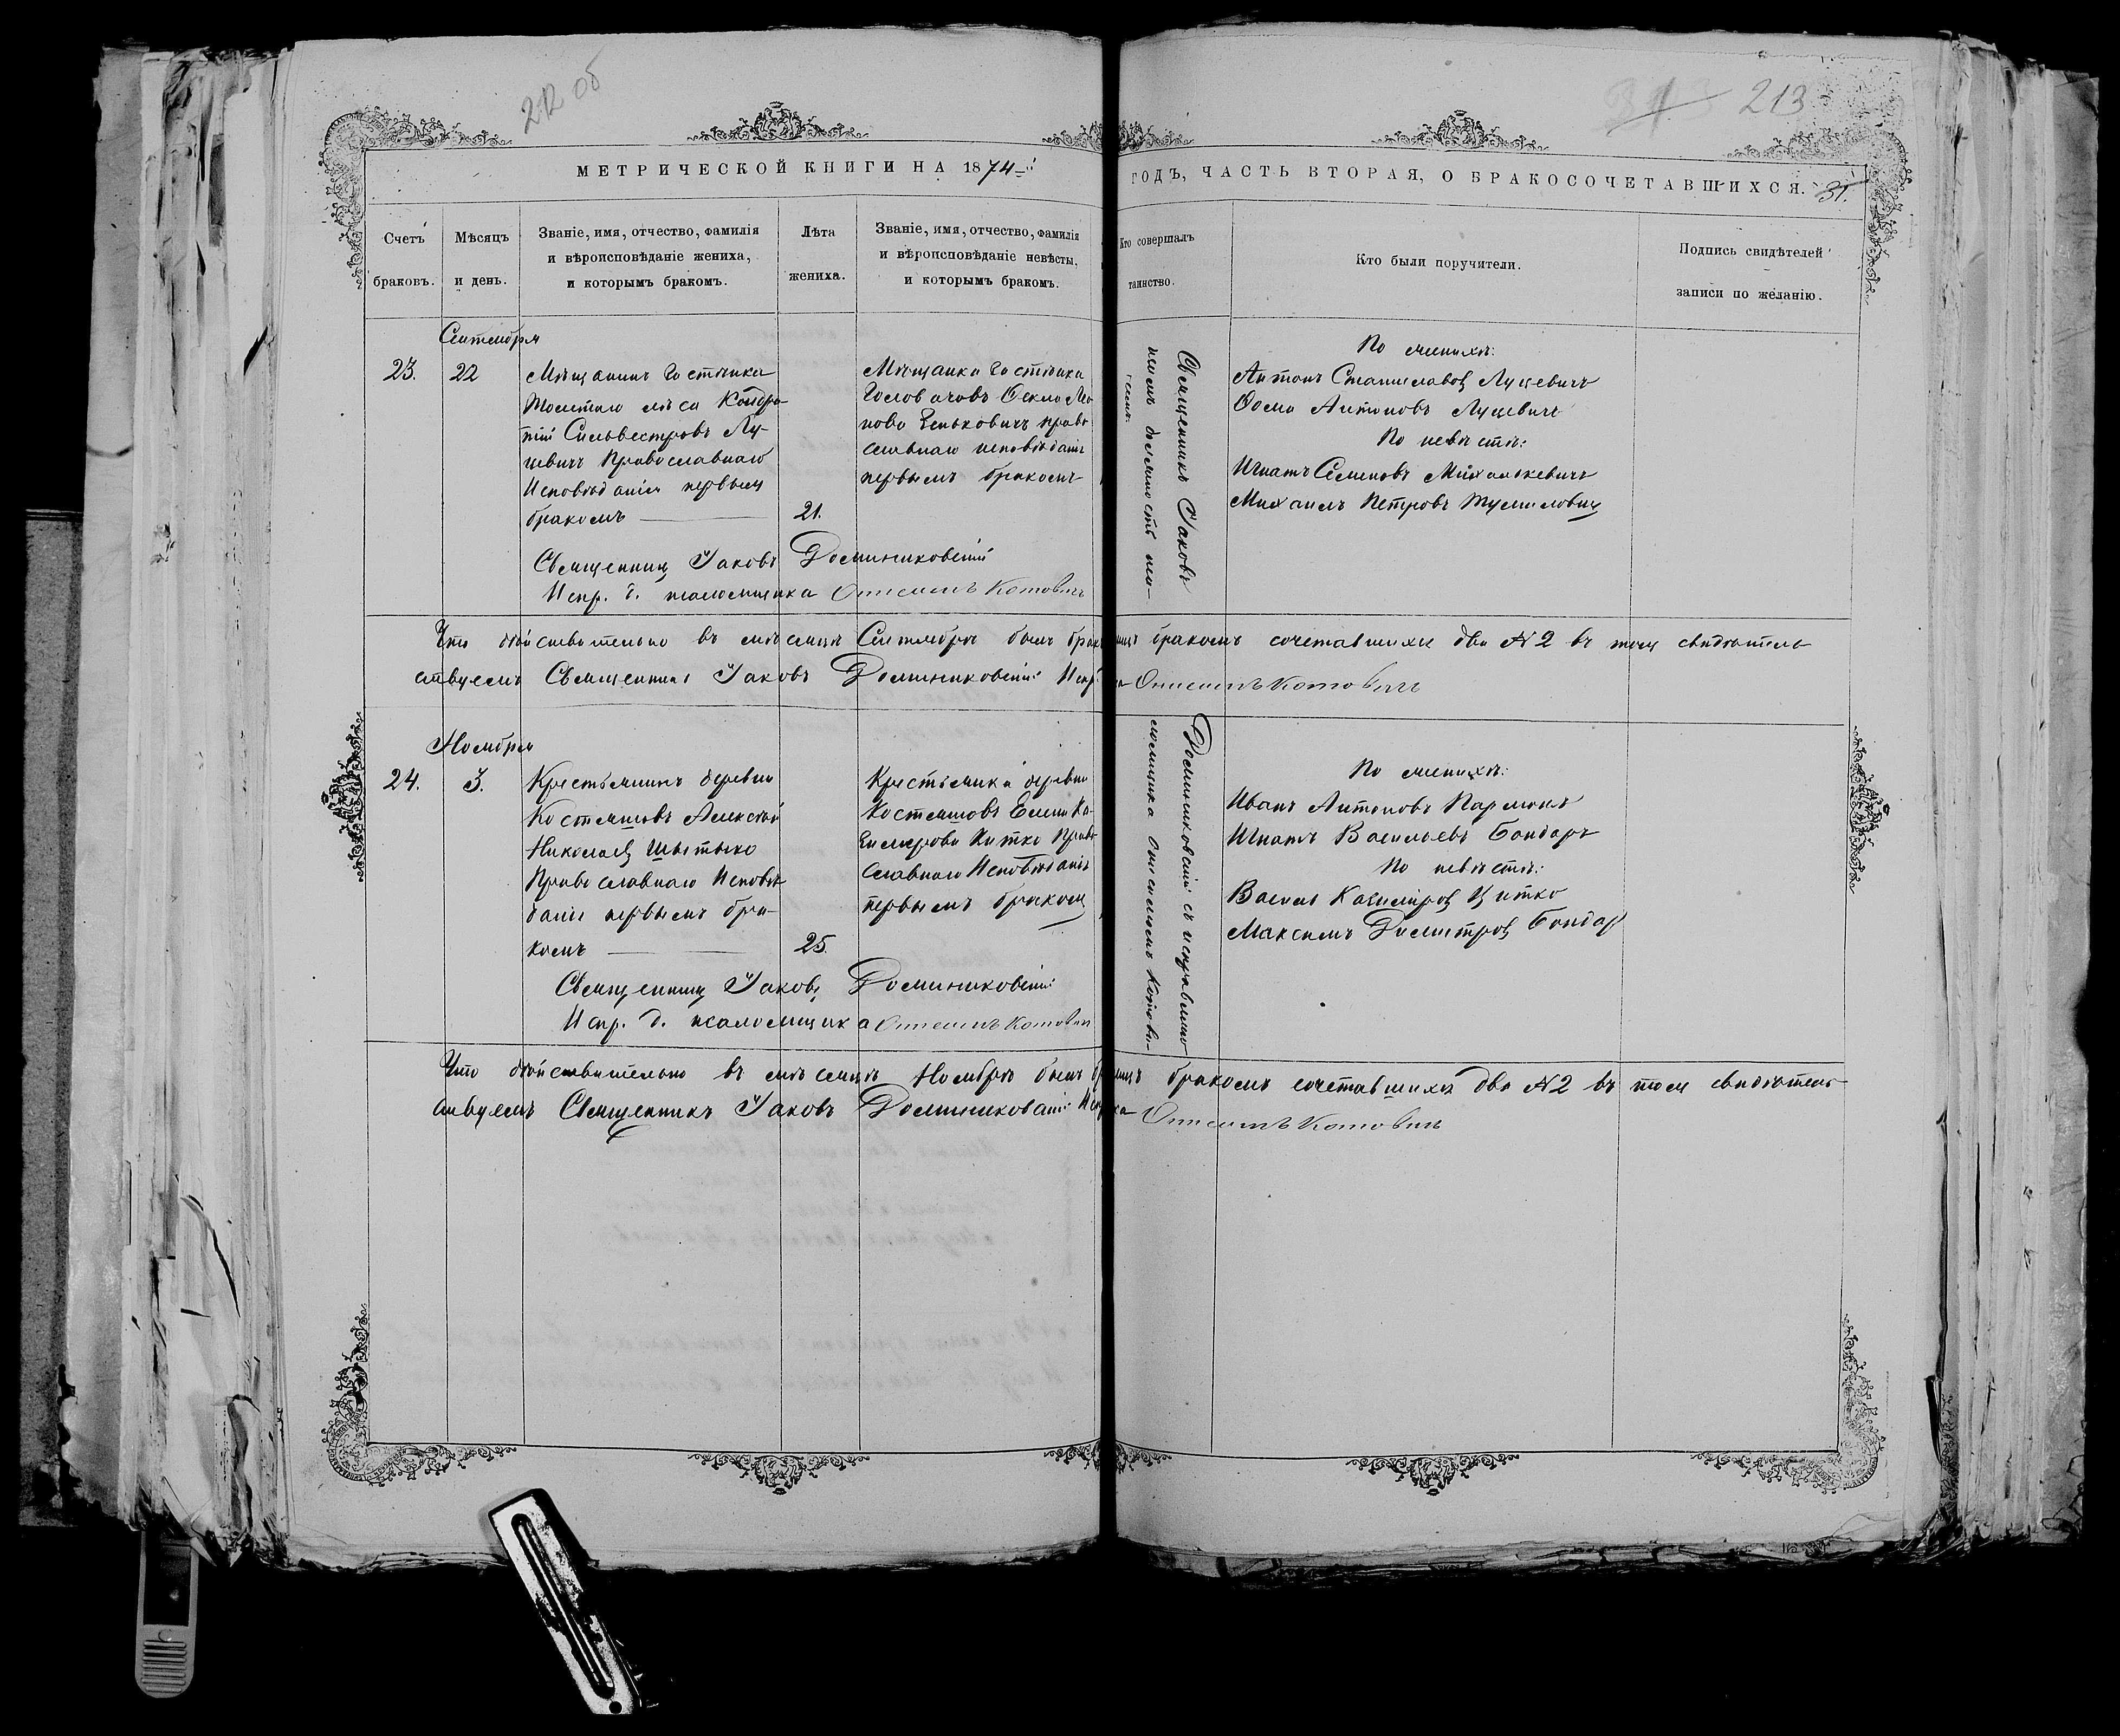 212 об
213
МЕТРИЧЕСКОЙ КНИГИ НА 1874
ГОДЪ, ЧАСТЬ ВТОРАЯ, О БРАКОСОЧЕТАВШИХСЯ. 31.
Счетъ браковъ.
Мѣсяцъ и день.
Званіе, имя, отчество, фамилія
и вѣроисповѣданіе жениха,
и которымъ бракомъ.
Лѣта жениха.
Званіе, имя, отчество, фамилія
и вѣроисповѣданіе невѣсты,
и которымъ бракомъ.
Кто совершалъ таинство.
Кто были поручители.
Подпись свидѣтелей
записи по желанію.
Сентября
23.
22
Мѣщанинъ Застѣнка
Кондра-
тій Сильвестровъ Лу-
цевичъ Православнаго
Исповѣданія первымъ
бракомъ
21.
Мѣщанка Застѣнка
православнаго исповѣданія
первымъ бракомъ
Священникъ Іаковъ
По женихѣ:
Антонъ Станиславовъ Луцевичъ
Ѳома Антоновъ Луцевичъ
По невѣстѣ:
Игнатъ Семеновъ Михалкевичъ
Михаилъ Петровъ Тумилович
Священникъ Іаковъ Доминиковскій
Испр. д. псаломщика Онисимъ Котовичъ
Что дѣйствительно въ мѣсяцѣ Сентябрѣ бракомъ сочетавшихся два № 2 въ томъ свидѣтель-
ствуемъ Священникъ Іаковъ Доминиковскій Онисимъ Котовичъ
Ноября
24.
3.
Крестьянинъ деревни
Костешовъ Алексѣй
Николаев Шытыко
Православнаго Исповѣ-
данія первымъ бра-
комъ
25.
Крестьянка деревни
Костешовъ Елена Ка-
зимірова Цитко Право-
славнаго Исповѣданія
первымъ бракомъ
Доминиковскій съ исправляющ
По женихѣ:
Иванъ Антоновъ Пармонъ
Игнатъ Васильевъ Бондаръ
По невѣстѣ:
Василь Казиміровъ Цитко
Максимъ Димитровъ Бондар
Священникъ Іаковъ Доминиковскій
Испр. д. псаломщика Онисимъ Котович
Что дѣйствительно въ мѣсяцѣ Ноябрѣ бракомъ сочетавшихся два № 2 въ томъ свидѣтель-
ствуемъ Священникъ Іаковъ Доминиковскій Онисимъ Котовичъ